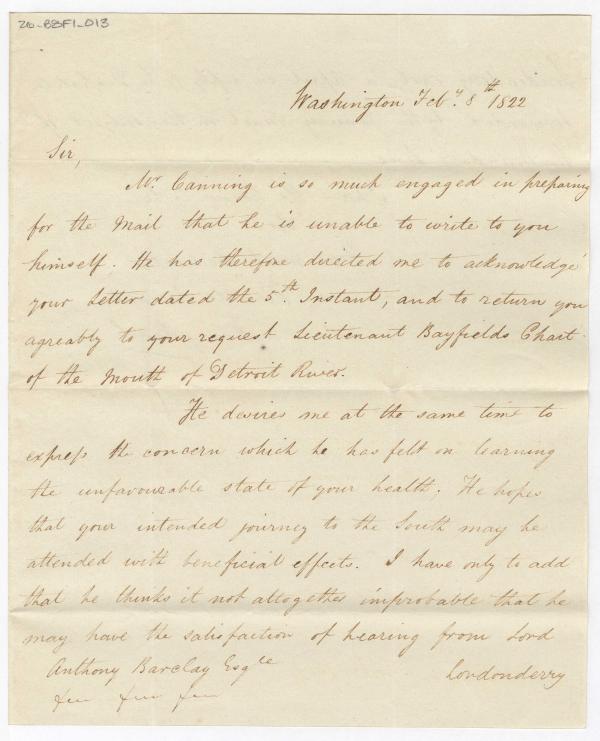 26-B3F1-013
Washington Feby. 8th 1822
Sir,
Mr. Canning is so much engaged in preparing
for the Mail that he is unable to write to you
himself. He has therefore directed me to acknowledge
your Letter dated the 5th. Instant, and to return you
agreably to your request Lieutenant Bayfields Chart
of the Mouth of Detroit River.
He desires me at the same time to
express the concern which he has felt on learning
the unfavourable state of your health. He hopes
that your intended journey to the South may be
attended with beneficial effects. I have only to add
that he thinks it not altogether improbable that he
may have the satisfaction of hearing from Lord
Anthony Barclay Esqre
Londonderry